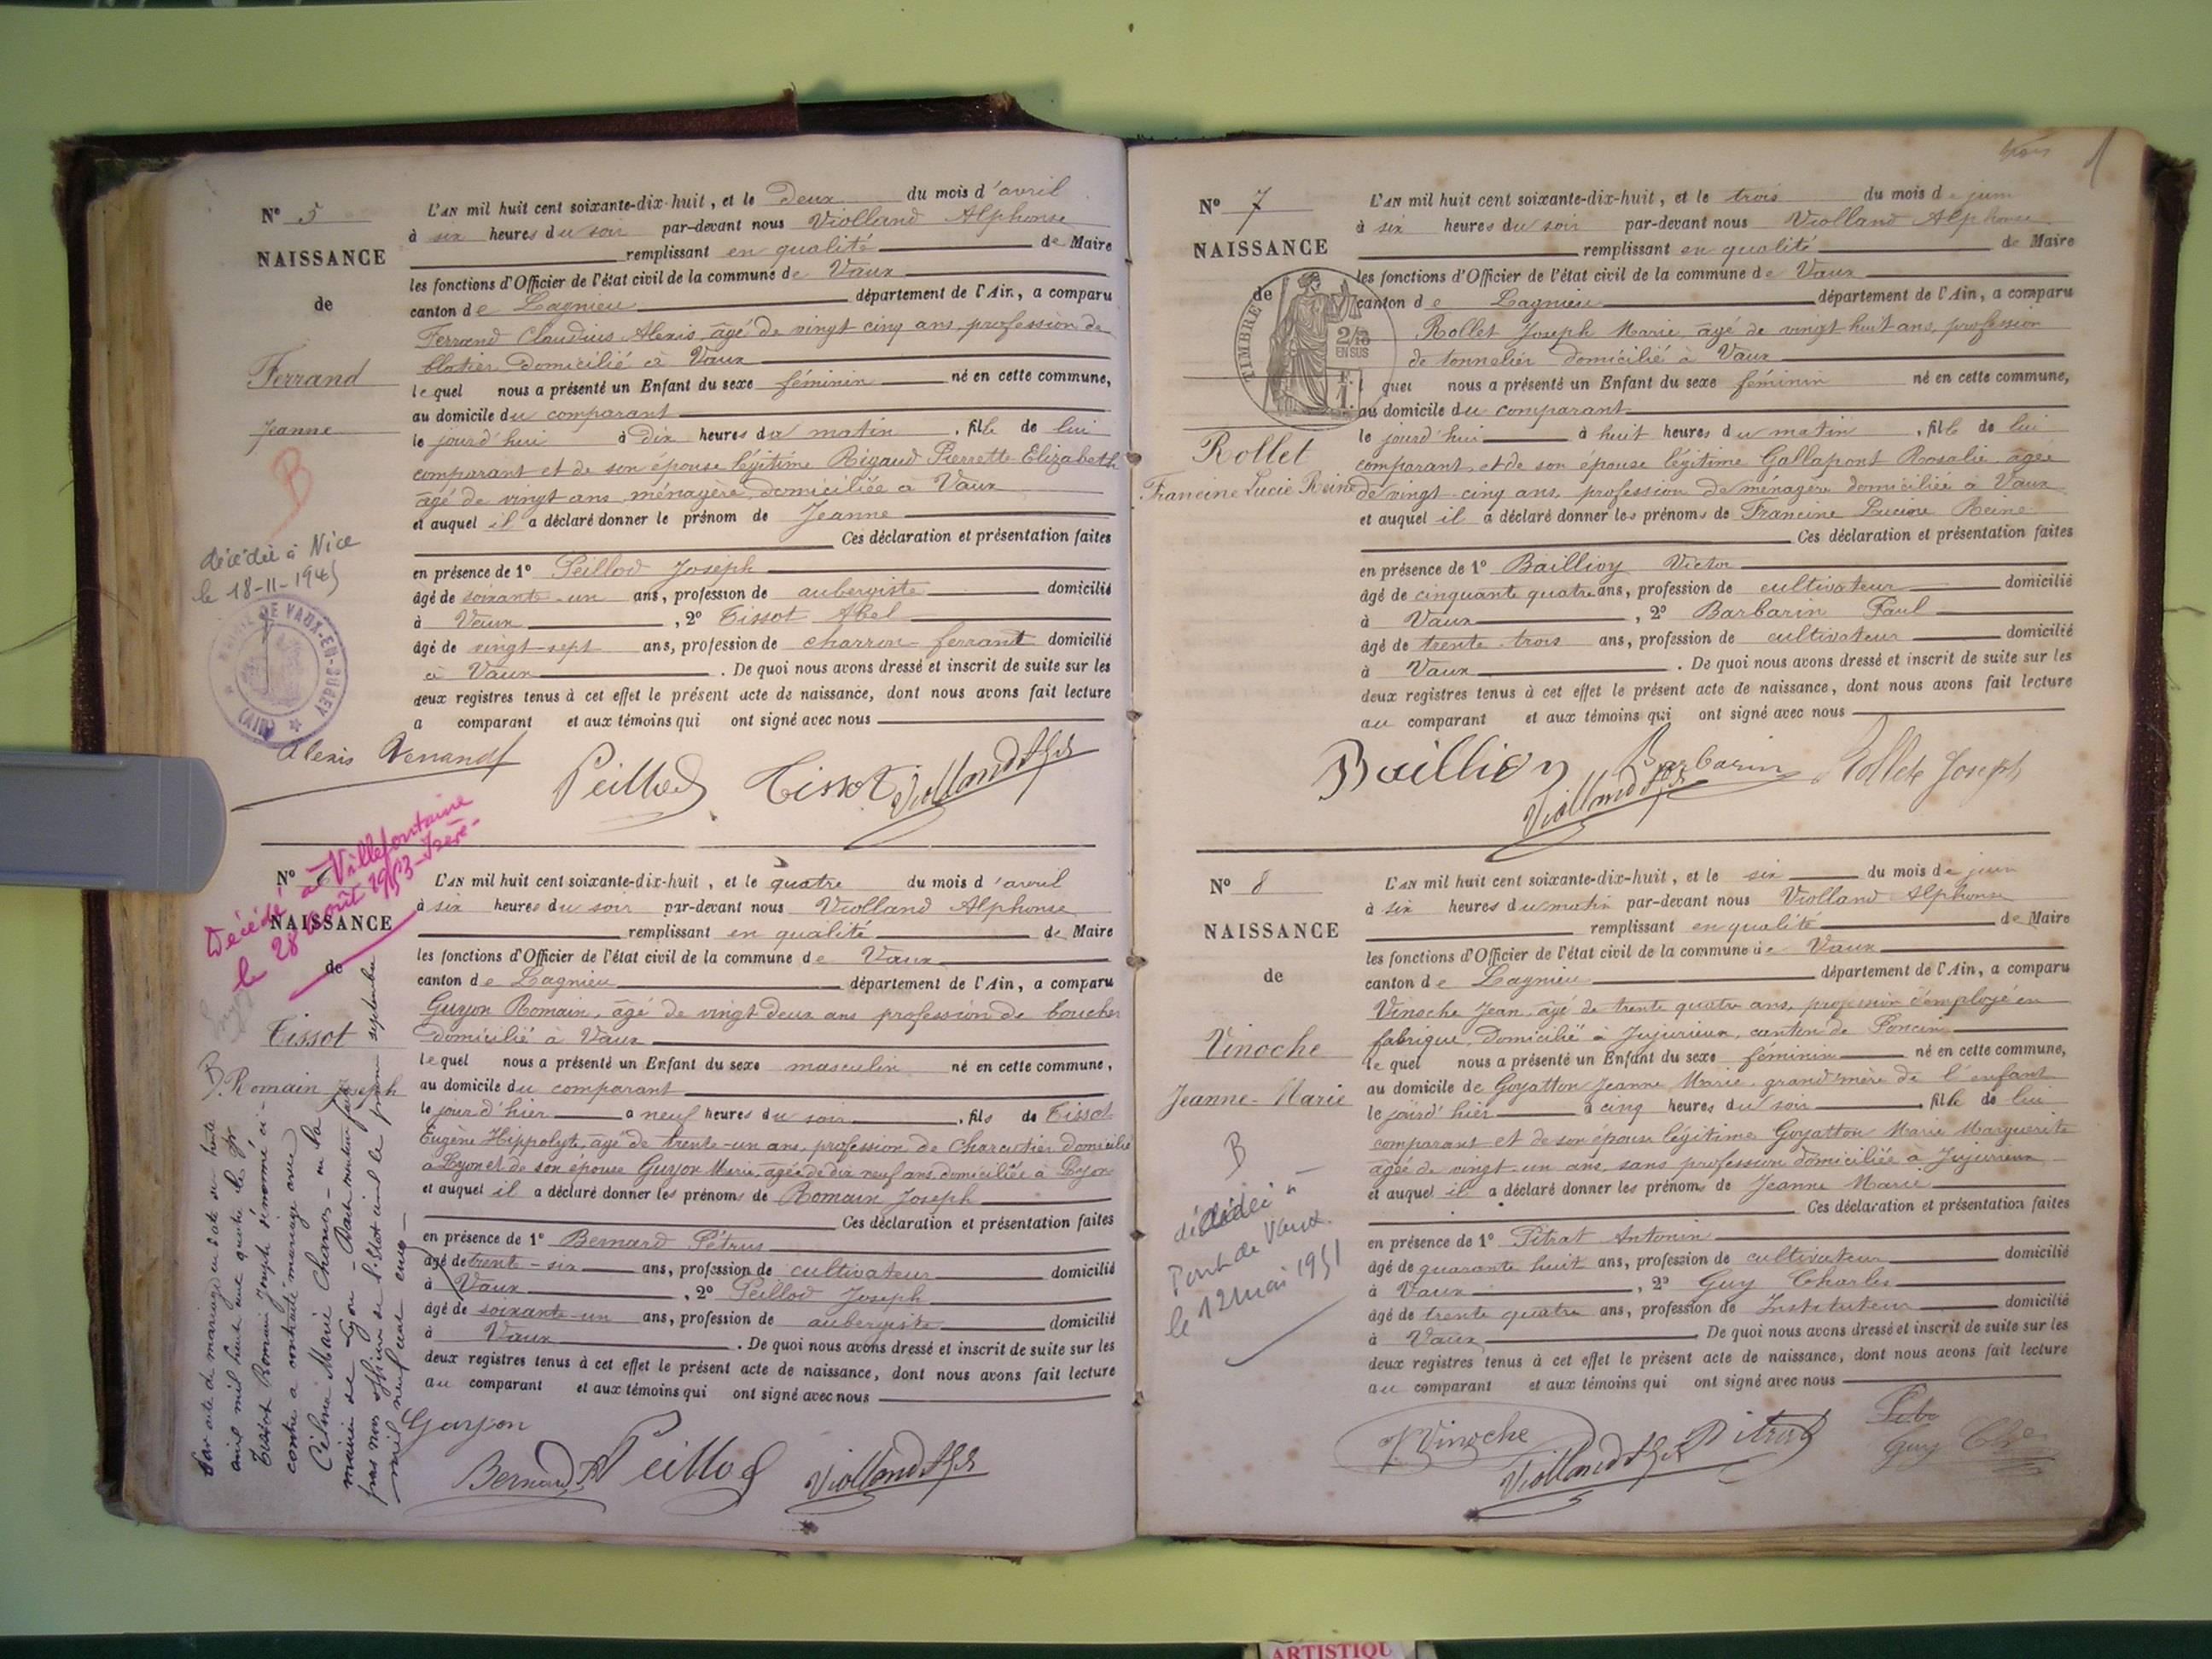 N° 5
NAISSANCE
de
Ferrand
Jeanne
B
décédée à Nice
le 18-11-1945
MAIRIE DE VAUX-EN-BUGEY
(AIN)
L'AN mil huit cent soixante-dix-huit, et le deux du mois d'avril
à six heures du soir par-devant nous Violland Alphonse
remplissant en qualité de Maire
les fonctions d'Officier de l'état civil de la commune de Vaux
canton de Lagnieu département de l'Ain, a comparu
Ferrand Claudius Alexis, âgé de vingt cinq ans, profession de
blatier domicilié à Vaux
lequel nous a présenté un Enfant du sexe féminin né en cette commune,
au domicile du comparant
le jourd'hui à dix heures du matin, fille de lui
comparant et de son épouse légitime Rigaud Pierrette Elizabeth
âgé de vingt ans ménagère domiciliée à Vaux
et auquel il a déclaré donner le prénom de Jeanne
Ces déclaration et présentation faites
en présence de 1° Peillod Joseph
âgé de soixante-un ans, profession de aubergiste domicilié
à Vaux, 2° Tissot Abel
âgé de vingt-sept ans, profession de charron-ferrant domicilié
à Vaux. De quoi nous avons dressé et inscrit de suite sur les
deux registres tenus à cet effet le présent acte de naissance, dont nous avons fait lecture
a comparant et aux témoins qui ont signé avec nous
Alexis Ferrand Peillod Tissot Violland Aph
Décédé à Villefontaine
le 28 Août 1953 - Isère -
N° 6
NAISSANCE
de
Tissot
Romain Joseph
Par acte de mariage en date du trente
avril mil neuf cent quatre le Sr
Tissot Romain Joseph dénommé ci-
contre a contracté mariage avec
Célina Marie Chanos - en la
mairie de Lyon -
par nous officier de l'Etat civil le premier septembre
mil neuf cent cinq -
L'AN mil huit cent soixante-dix-huit, et le quatre du mois d'avril
à six heures du soir par-devant nous Violland Alphonse
remplissant en qualité de Maire
les fonctions d'Officier de l'état civil de la commune de Vaux
canton de Lagnieu département de l'Ain, a comparu
Guyon Romain, âgé de vingt deux ans profession de boucher
domicilié à Vaux
lequel nous a présenté un Enfant du sexe masculin né en cette commune,
au domicile du comparant
le jour d'hier à neuf heures du soir, fils de Tissot
Eugène Hippolyte, âgé de trente-un ans, profession de charcutier domicilié
à Lyon et de son épouse Guyon Marie, agée de dix neuf ans, domiciliée à Lyon
et auquel il a déclaré donner les prénoms de Romain Joseph
Ces déclaration et présentation faites
en présence de 1° Bernard Pétrus
âgé de trente-six ans, profession de cultivateur domicilié
à Vaux, 2° Peillod Joseph
âgé de soixante-un ans, profession de aubergiste domicilié
à Vaux. De quoi nous avons dressé et inscrit de suite sur les
deux registres tenus à cet effet le présent acte de naissance, dont nous avons fait lecture
au comparant et aux témoins qui ont signé avec nous
Guyon
Bernard P Peillod Violland Aph
N° 7
NAISSANCE
de
TIMBRE
2/10
EN SUS
Rollet
Francine Lucie Reine
L'AN mil huit cent soixante-dix-huit, et le trois du mois de juin
à six heures du soir par-devant nous Violland Alphonse
remplissant en qualité de Maire
les fonctions d'Officier de l'état civil de la commune de Vaux
canton de Lagnieu département de l'Ain, a comparu
Rollet Joseph Marie, âgé de vingt huit ans, profession
de tonnelier domicilié à Vaux
quel nous a présenté un Enfant du sexe féminin né en cette commune,
au domicile du comparant
le jourd'hui à huit heures du matin, fille de lui
comparant, et de son épouse légitime Gallapont Rosalie, agée
de vingt-cinq ans, profession de ménagère domiciliée à Vaux
et auquel il a déclaré donner les prénoms de Francine Lucie Reine
Ces déclaration et présentation faites
en présence de 1° Baillioy Victor
âgé de cinquante quatre ans, profession de cultivateur domicilié
à Vaux, 2° Barbarin Paul
âgé de trente-trois ans, profession de cultivateur domicilié
à Vaux. De quoi nous avons dressé et inscrit de suite sur les
deux registres tenus à cet effet le présent acte de naissance, dont nous avons fait lecture
au comparant et aux témoins qui ont signé avec nous
Baillioy Barbarin Rollet Joseph
Violland Aph
N° 8
NAISSANCE
de
Vinoche
Jeanne-Marie
B
décédée à
Pont de Vaux
le 12 mai 1951
L'AN mil huit cent soixante-dix-huit, et le six du mois de juin
à six heures du matin par-devant nous Violland Alphonse
remplissant en qualité de Maire
les fonctions d'Officier de l'état civil de la commune de Vaux
canton de Lagnieu département de l'Ain, a comparu
Vinoche Jean, âgé de trente quatre ans, profession d'employé en
fabrique, domicilié à Jujurieux, canton de Poncin
lequel nous a présenté un Enfant du sexe féminin né en cette commune,
au domicile de Goyatton Jeanne Marie, grand'mère de l'enfant
le jourd'hier à cinq heures du soir, fille de lui
comparant et de son épouse légitime Goyatton Marie Marguerite
agée de vingt-un ans, sans profession domiciliée à Jujurieux
et auquel il a déclaré donner les prénoms de Jeanne Marie
Ces déclaration et présentation faites
en présence de 1° Pitrat Antonin
âgé de quarante huit ans, profession de cultivateur domicilié
à Vaux, 2° Guy Charles
âgé de trente quatre ans, profession de Instituteur domicilié
à Vaux. De quoi nous avons dressé et inscrit de suite sur les
deux registres tenus à cet effet le présent acte de naissance, dont nous avons fait lecture
au comparant et aux témoins qui ont signé avec nous
J. Vinoche Violland Aph Pitrat
Guy Chs
ARTISTIQU